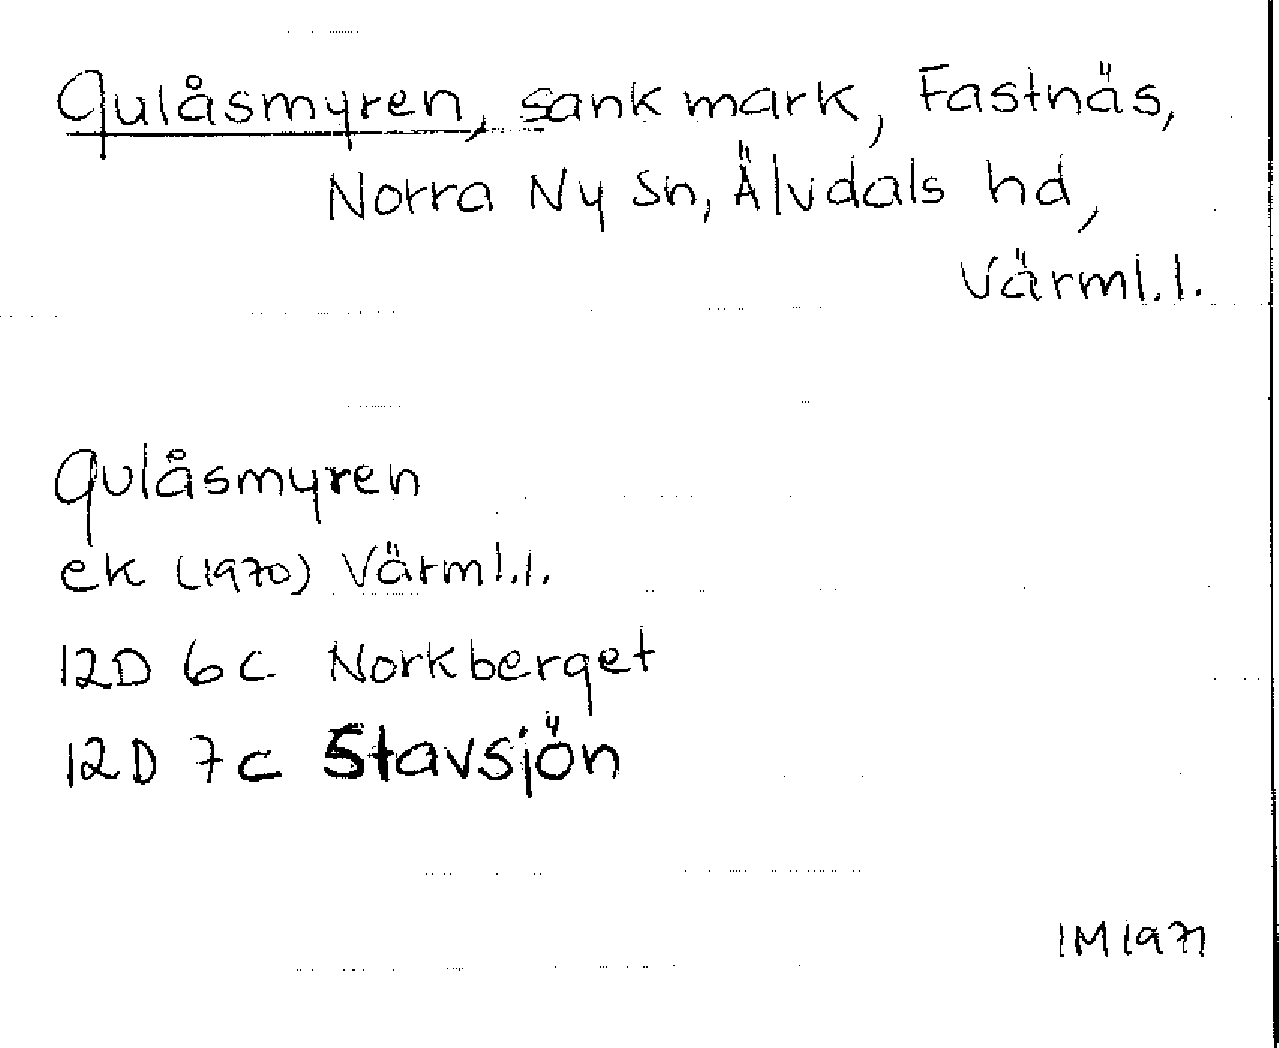 Gulåsmyren, sank mark, Fastnäs,
Norra Ny sn, Älvdals hd,
Värml.l.
Gulåsmyren
ek (1970) Värml.l.
12D 6c Norkberget
12D 7c Stavsjön
IM 1971